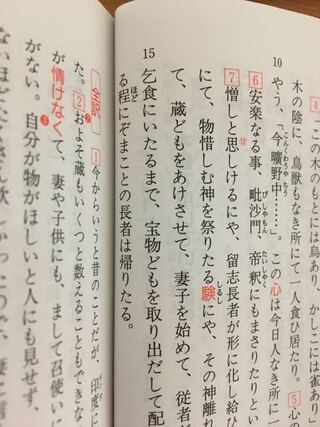 4 この木のもとには鳥あり、かしこには雀あり
木の陰に、鳥獣もなき所にて一人食ひ居たり。 5 心の
10 やう、「今曠野中……」。この心は今日人なき所に一
6 安楽なる事、毗沙門、帝釈にもまさりたりとい
7 憎しと思しけるにや、留志長者が形に化し給ひ
にて、物惜しむ神を祭りたる験にや、その神離れ
て、蔵どもをあけさせて、妻子を始めて、従者
15 乞食にいたるまで、宝物どもを取り出だして配
る程にぞまことの長者は帰りたる。
全訳 1 今からいうと昔のことだが、印度に
た。 2 およそ蔵もいくつと数えることもできな
が情けなくて、妻や子供にも、まして召使いに
がない。自分が物がほしいと人にも見せず、
ないほど